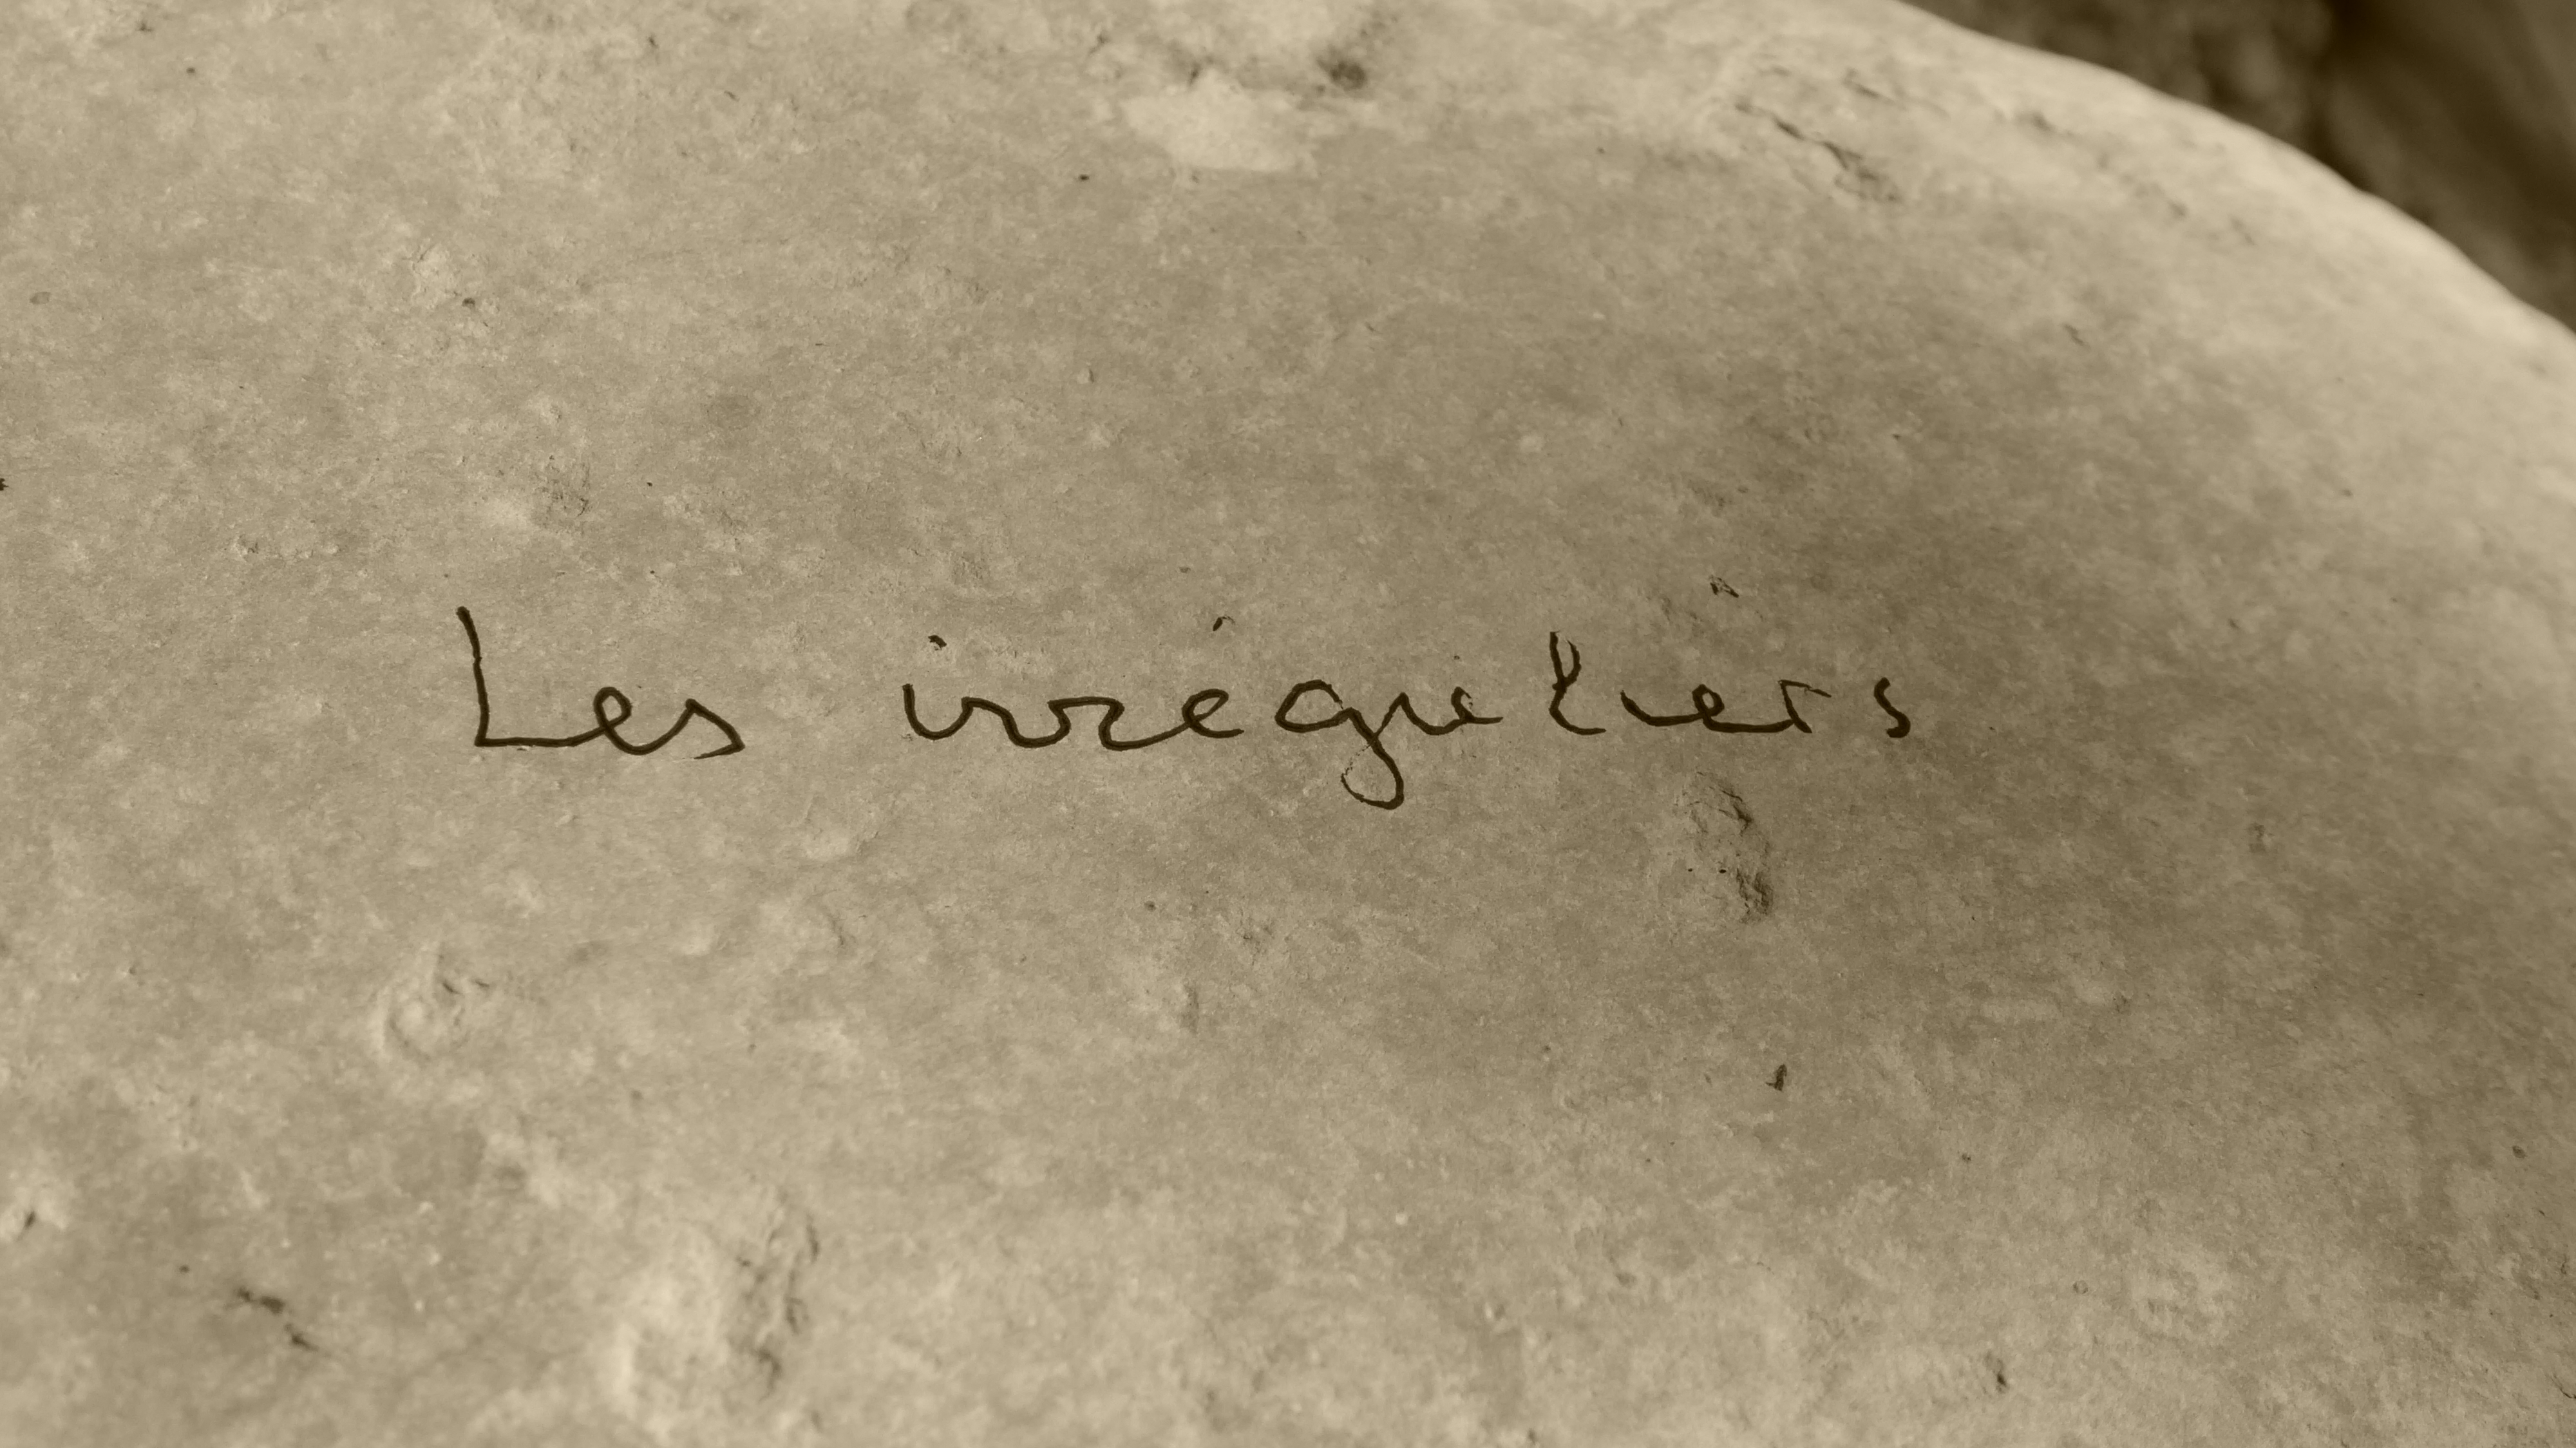 Les irréguliers